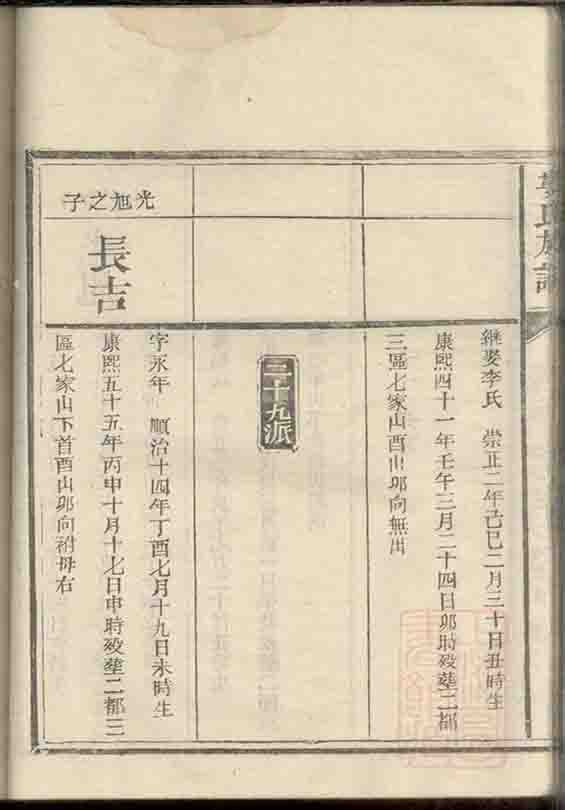 氏族譜
繼娶李氏 崇正二年己巳二月三十日丑時生
康熙四十一年壬午三月二十四日卯時歿塟二都
三區七家山酉山卯向無出
三十九派
光旭之子
長吉
字永年 順治十四年丁酉七月十九日未時生
康熙五十五年丙申十月十七日申時歿塟二都三
區七家山下首酉山卯向祔母右